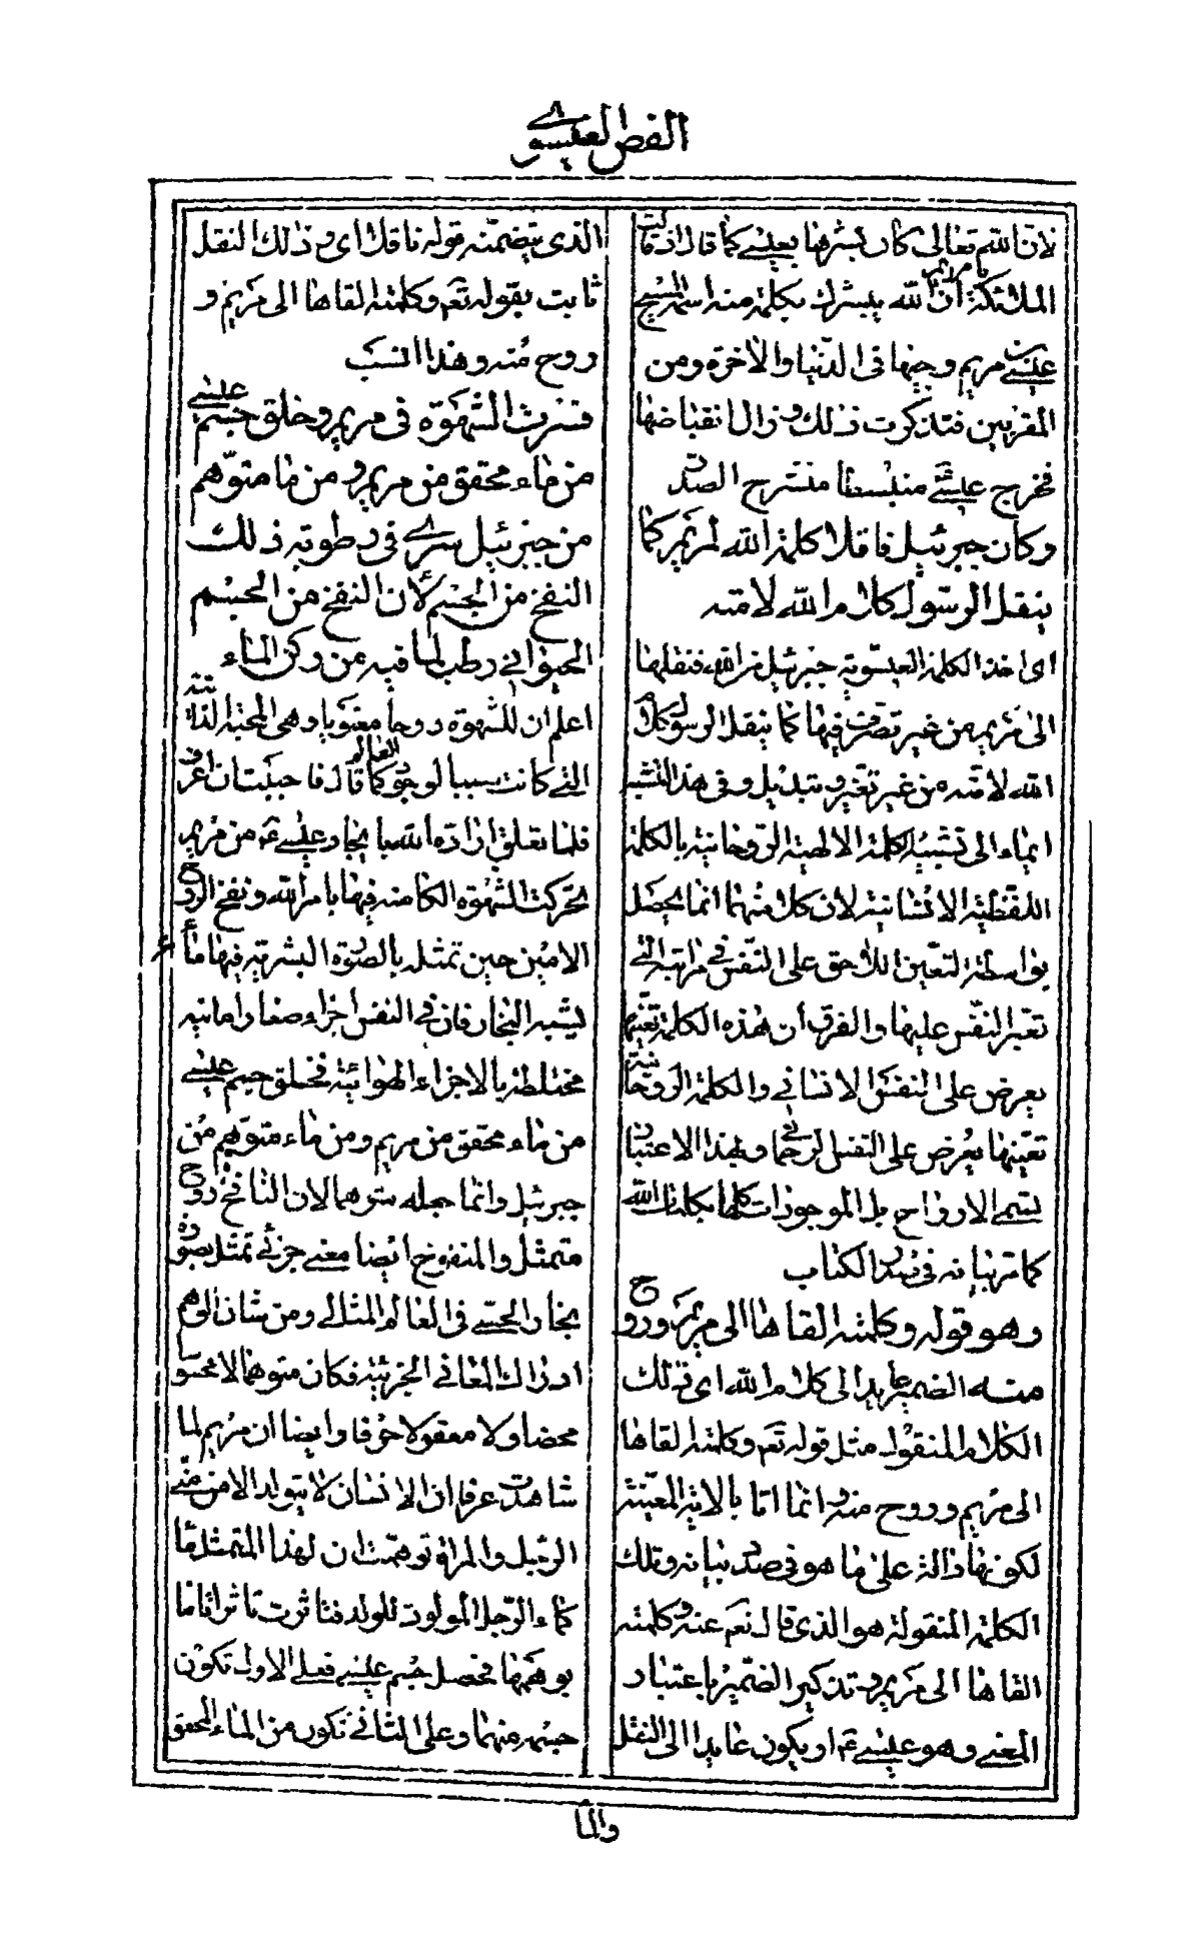 الفص العيسوي
لان الله تعالى كان بشرها بعيسى كما قال اذ قالت
الملائكة يا مريم ان الله يبشرك بكلمة منه اسمه المسيح
عيسى بن مريم وجيها فى الدنيا والاخرة ومن
المقربين فتذكرت ذلك وزال انقباضها
فخرج عيسى منبسطا منشرح الصدر
وكان جبرئيل ناقلا كلمة الله لمريم كما
ينقل الرسول كلام الله لامته
اى اخذ الكلمة العيسوية جبرئيل من الله فنقلها
الى مريم من غير تصرف فيها كما ينقل الرسول كلام
الله لامته من غير تغيير وتبديل وفى هذا التشبيه
ايماء الى تشبيه الكلمة الالهية الروحانية بالكلمة
اللفظية الانسانية لان كلا منهما انما يحصل
بواسطة التعين اللاحق على النفس فى مراتبه التى
تعبر النفس عليها والفرق ان هذه الكلمة تعينها
يعرض على النفس الانسانى والكلمة الروحانية
تعينها يعرض على النفس الرحمانى وبهذا الاعتبار
يسمى الارواح بل الموجودات كلها بكلمات الله
كما مر بيانه فى صدر الكتاب
وهو قوله وكلمته القاها الى مريم وروح
منه الضمير عايد الى كلام الله اى ذلك
الكلام المنقول مثل قوله تعم وكلمته القاها
الى مريم وروح منه وانما اتا بالاية المعينة
لكونها دالة على ما هو فى صدد بيانه وتلك
الكلمة المنقولة هو الذى قال تعم عنه وكلمته
القاها الى مريم وتذكير الضمير باعتبار
المعنى وهو عيسى عم او يكون عايدا الى النقل
الذى يتضمنه قوله ناقلا اى وذلك النقل
ثابت بقوله تعم وكلمته القاها الى مريم و
روح منه وهذا انسب
فسرت الشهوة فى مريم وخلق جسم عيسى
من ماء محقق من مريم ومن ما متوهم
من جبرئيل سرى فى رطوبة ذلك
النفخ من الجسم لأن النفخ من الجسم
الحيوانى رطب لما فيه من ركن الماء
اعلم ان للشهوة روحا معنويا وهى المحبة الذاتية
التى كانت سببا لوجود العالم كما قال فاحببت ان اعرف
فلما تعلق ارادة الله بايجاد عيسى عم من مريم
تحركت الشهوة الكامنة فيها بامر الله ونفخ الروح
الامين حين تمثل بالصورة البشرية فيها ماء
يشبه البخار فان فى النفس اجزاء صغارا مائية
مختلطة بالاجزاء الهوائية فخلق جسم عيسى
من ماء محقق من مريم ومن ماء متوهم من
جبرئيل وانما جعله متوهما لان النافخ روح
متمثل والمنفوخ ايضا معنى جزئى تمثل بصورة
بخار الحسى فى العالم المثالى ومن شان الوهم
ادراك المعانى الجزئية فكان متوهما لا محسوسا
محضا ولا معقولا صرفا وايضا ان مريم لما
شاهدت عرفا ان الانسان لا يتولد الا من منى
الرجل والمراة توهمت ان لهذا المتمثل ماء
كماء الرجل المولود للولد فتاثرت تاثرا تاما
بوهمها فحصل جسم عيسى فعلى الاول تكون
جسمه منهما وعلى الثانى تكون من الماء المحقق
والما